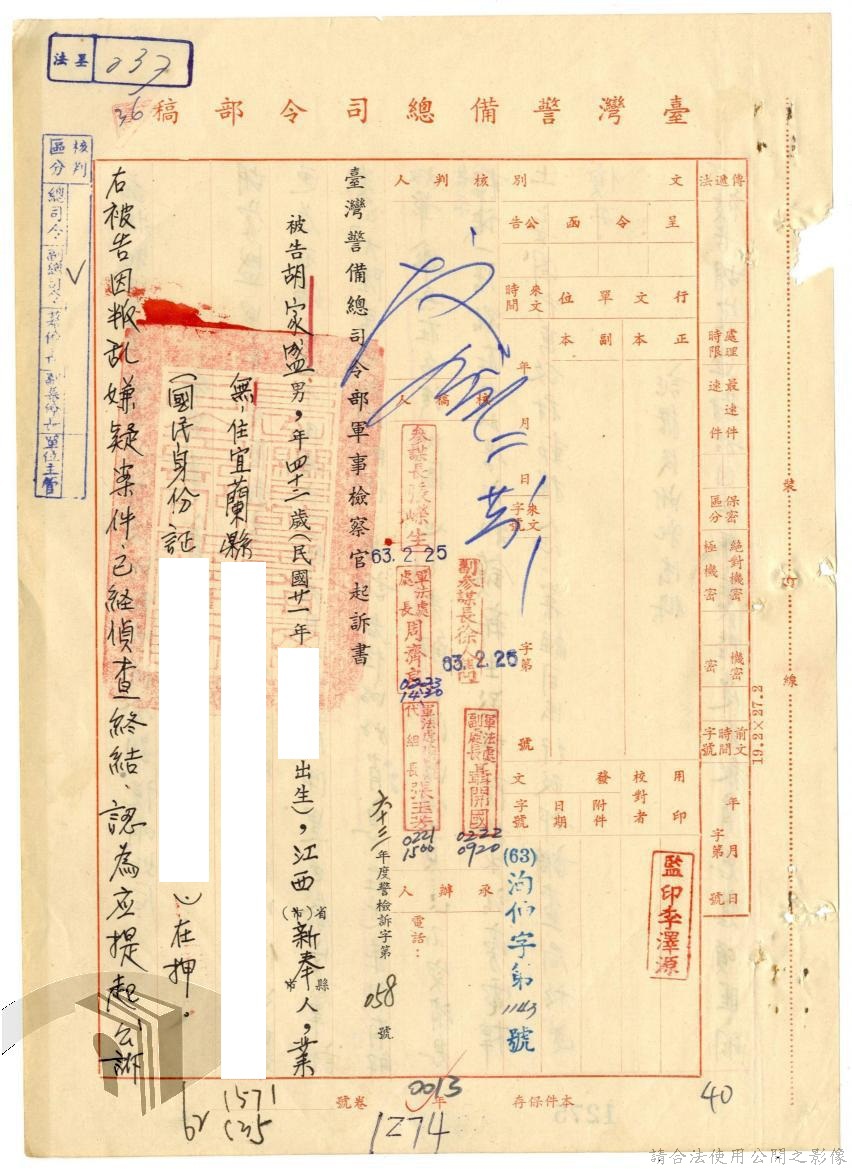 法墨 037
36
臺灣警備總司令部稿
核判區分 總司令 副總司令 參謀長 副參謀長 單位主管
傳遞法
處理時限 最速件 速件
保密區分 絕對機密 極機密 機密 密
前文時間字號 年月日 字第號
文別 呈 令 函 公告
核判人
行文單位 正本 副本
來文時間 年月日
來文字號 字第 號
核稿人
參謀長
63.2.25
副參謀長徐
63.2.25
軍法處處長周濟
0223
1420
軍法處副處長聶開國
0222
0920
代組長張玉芳
0221
1500
用印 校對者 發文 附件 日期 字號
監印李澤源
(63)
字第1143號
承辦人
電話：
臺灣警備總司令部軍事檢察官起訴書
六十三年度警檢訴字第058號
被告胡家盛男，年四十二歲（民國廿一年
出生），江西省(市)新奉縣市人，業
無，住宜蘭縣
（國民身份証
）在押．
右被告因叛乱嫌疑案件，已経偵查終結、認為应提起公訴
裝訂線
19.2×27.2
本件保存 年 卷號
0013
1274
40
1571
62
請合法使用公開之影像